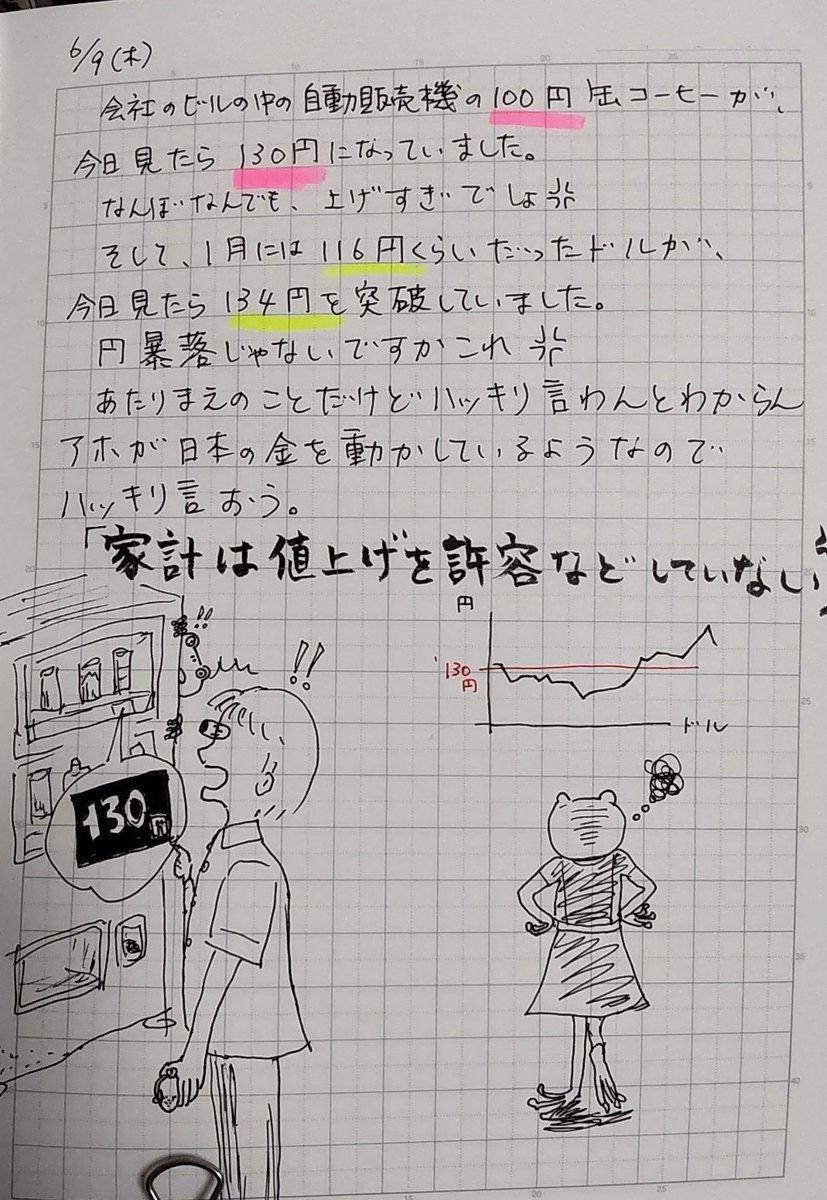 6/9(木)
会社のビルの中の自動販売機の100円缶コーヒーが、
今日見たら130円になっていました。
なんぼなんでも、上げすぎでしょ💢
そして、1月には116円くらいだったドルが、
今日見たら134円を突破していました。
円暴落じゃないですかこれ💢
あたりまえのことだけどハッキリ言わんとわからん
アホが日本の金を動かしているようなので
ハッキリ言おう。
「家計は値上げを許容などしていない
円
!!
!!
130
円
ドル
130円